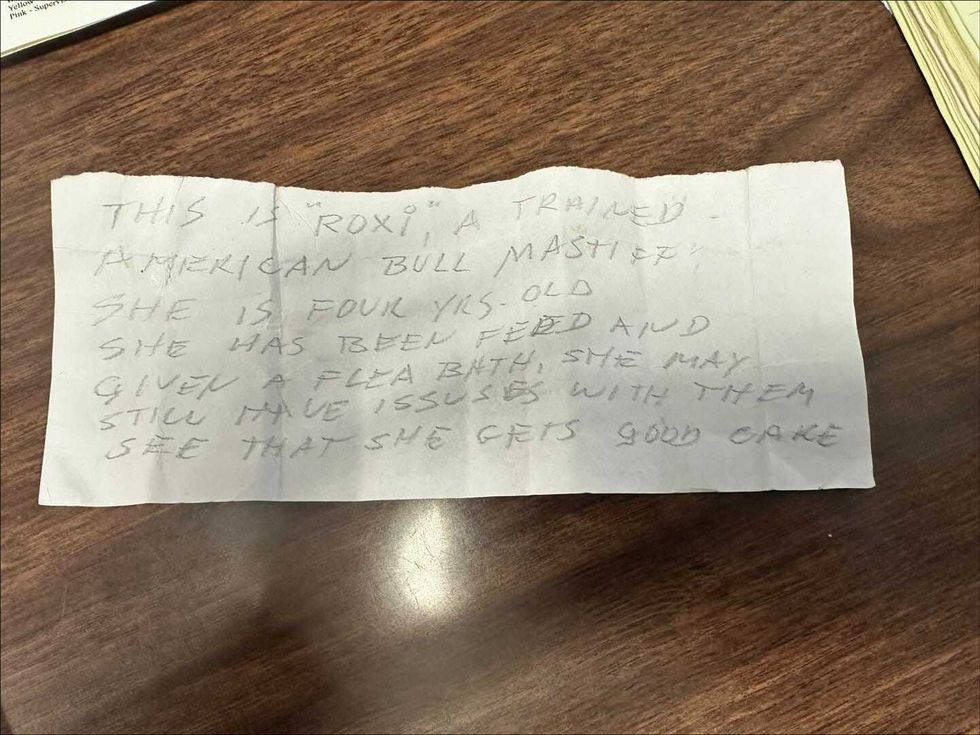 Yellow
Pink - Superv
THIS IS "ROXI", A TRAINED
AMERICAN BULL MASTIFF,
SHE IS FOUR YRS. OLD
SHE HAS BEEN FEEED AND
GIVEN A FLEA BATH, SHE MAY
STILL HAVE ISSUSES WITH THEM
SEE THAT SHE GETS GOOD CARE